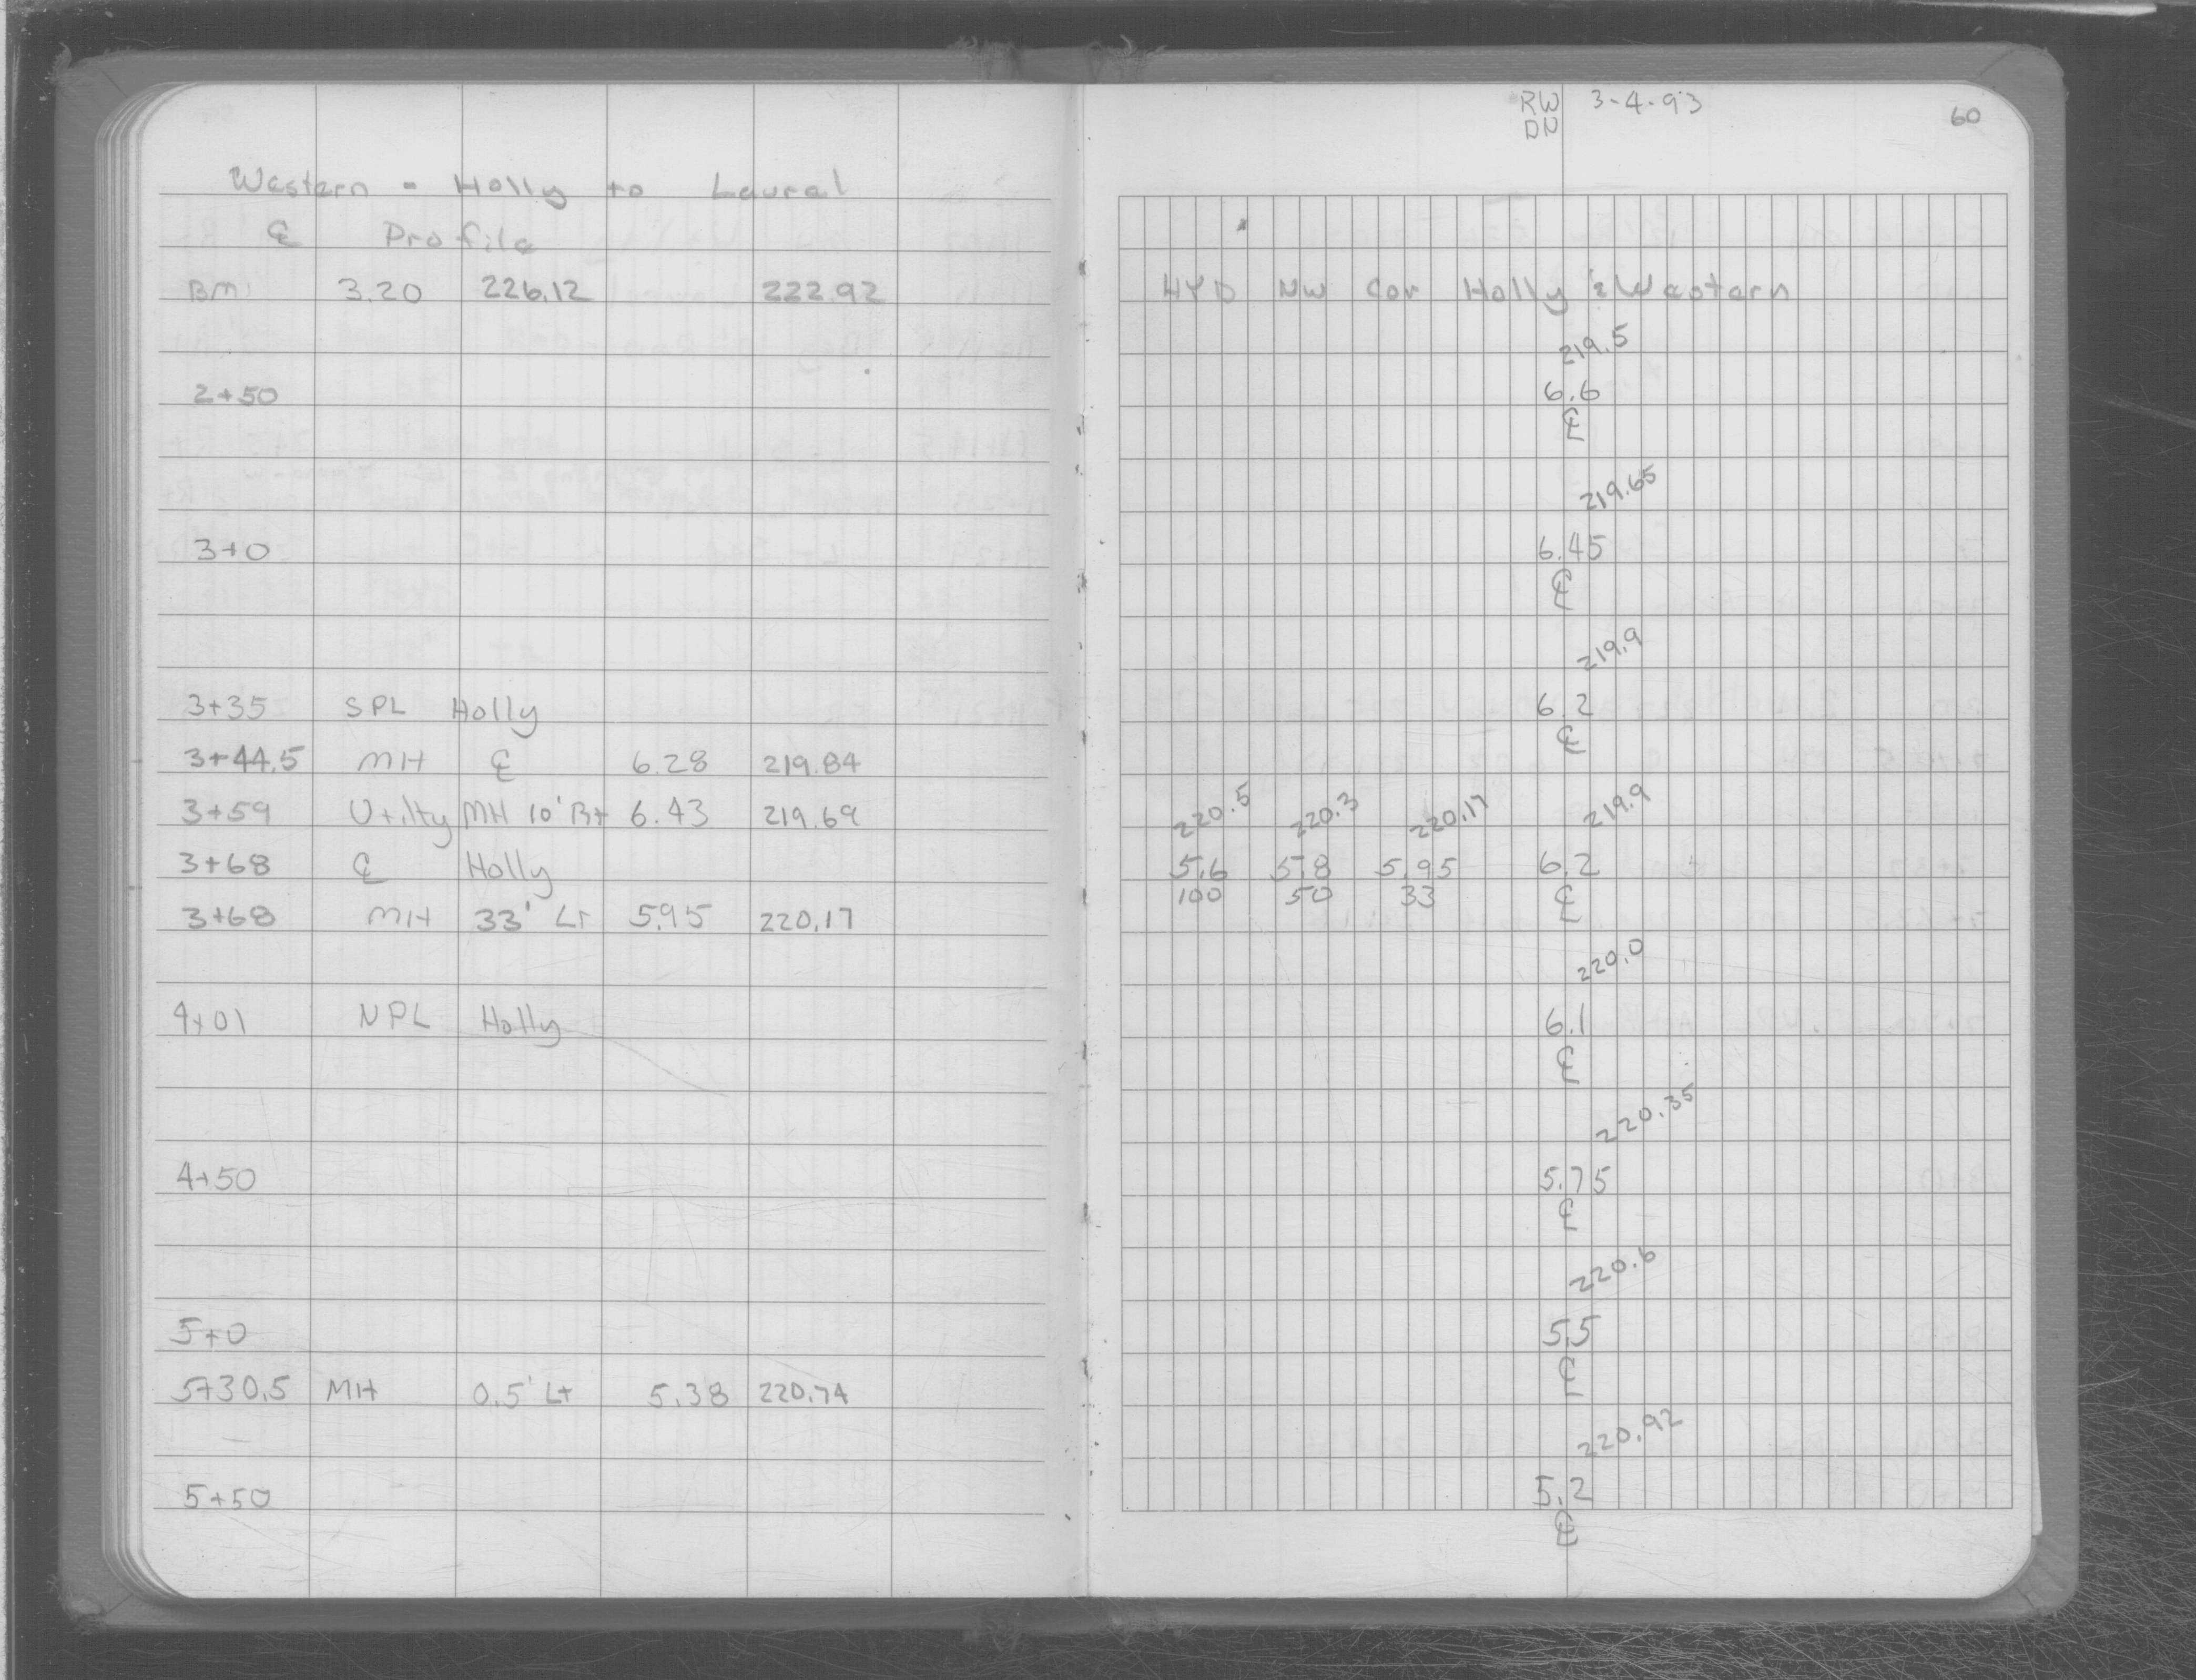 Western - Holly to Laurel
℄ Profile
BM 3.20 226.12 222.92
2+50
3+0
3+35 SPL Holly
3+44.5 MH ℄ 6.28 219.84
3+59 Utilty MH 10' Rt 6.43 219.69
3+68 ℄ Holly
3+68 MH 33' Lt 5.95 220.17
4+01 NPL Holly
4+50
5+0
5+30.5 MH 0.5' Lt 5.38 220.74
5+50
RW 3-4-93
DN
60
HYD NW Cor Holly & Western
219.5
6.6
℄
219.65
6.45
℄
219.9
6.2
℄
220.5 220.3 220.17 219.9
5.6 5.8 5.95 6.2
100 50 33 ℄
220.0
6.1
℄
220.35
5.75
℄
220.6
5.5
℄
220.92
5.2
℄